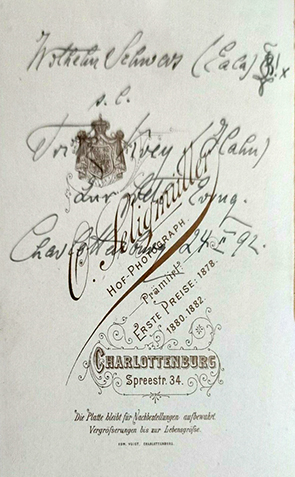 Wilhelm Schwers (Lala)
s. l.
(Hahn)
zur
Charlottenburg 24 II 92.
C. Seligmüller
HOF-PHOTOGRAPH
Prämiirt
ERSTE PREISE: 1878.
1880. 1882.
CHARLOTTENBURG
Spreestr. 34.
Die Platte bleibt für Nachbestellungen aufbewahrt.
Vergrösserungen bis zur Lebensgrösse.